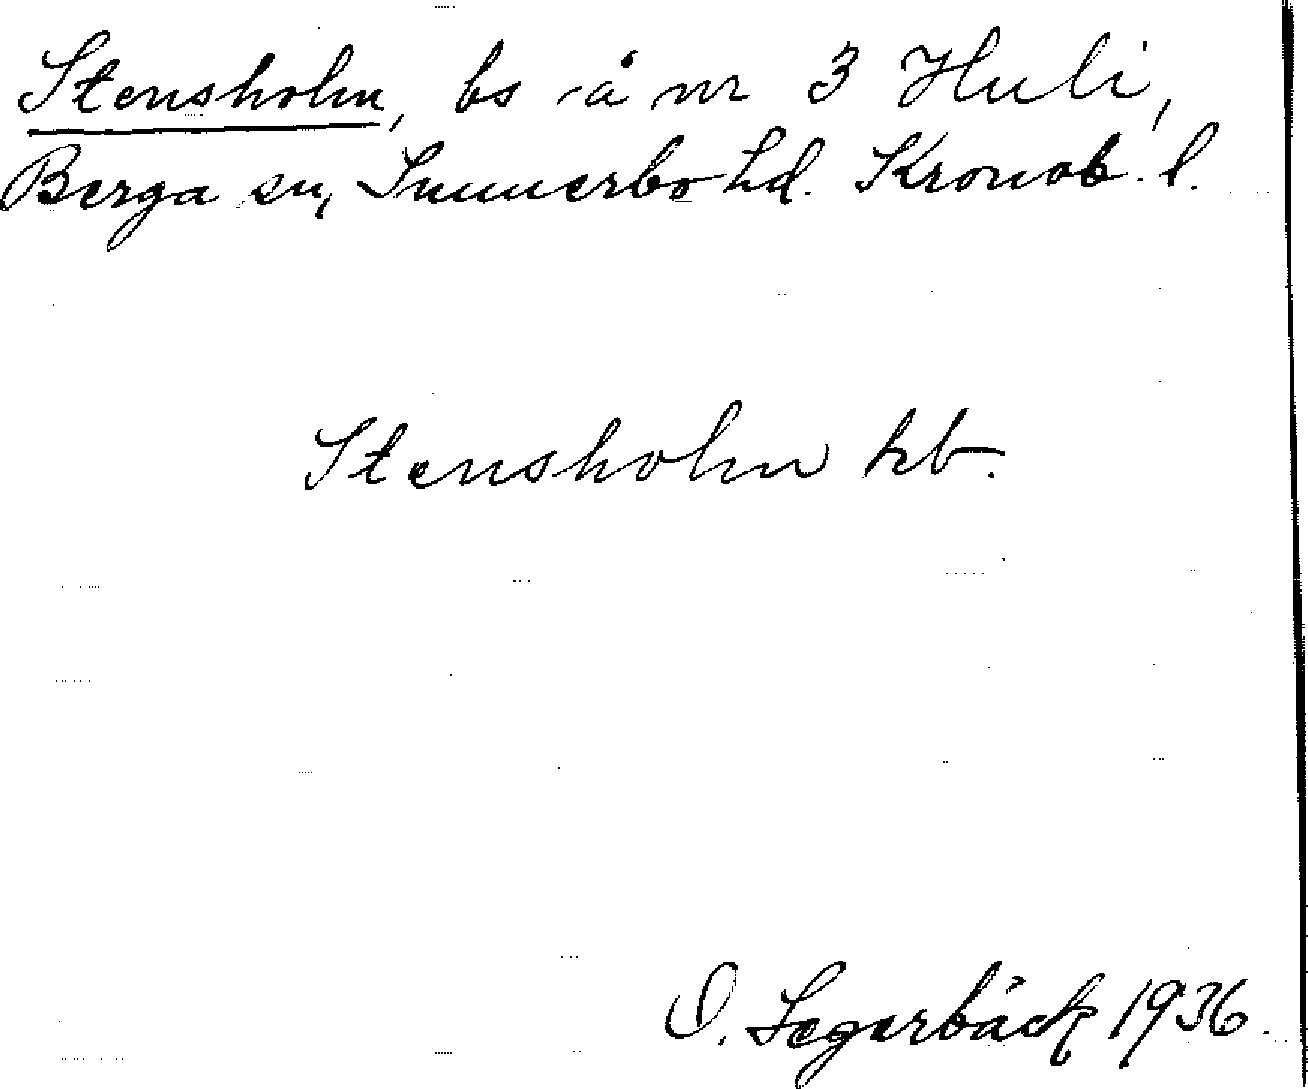 Stensholm, bs å nr 3 Huli,
Berga sn, Sunnerbo hd. Kronob. l.
Stensholm kb.
O. Segerbäck 1936.